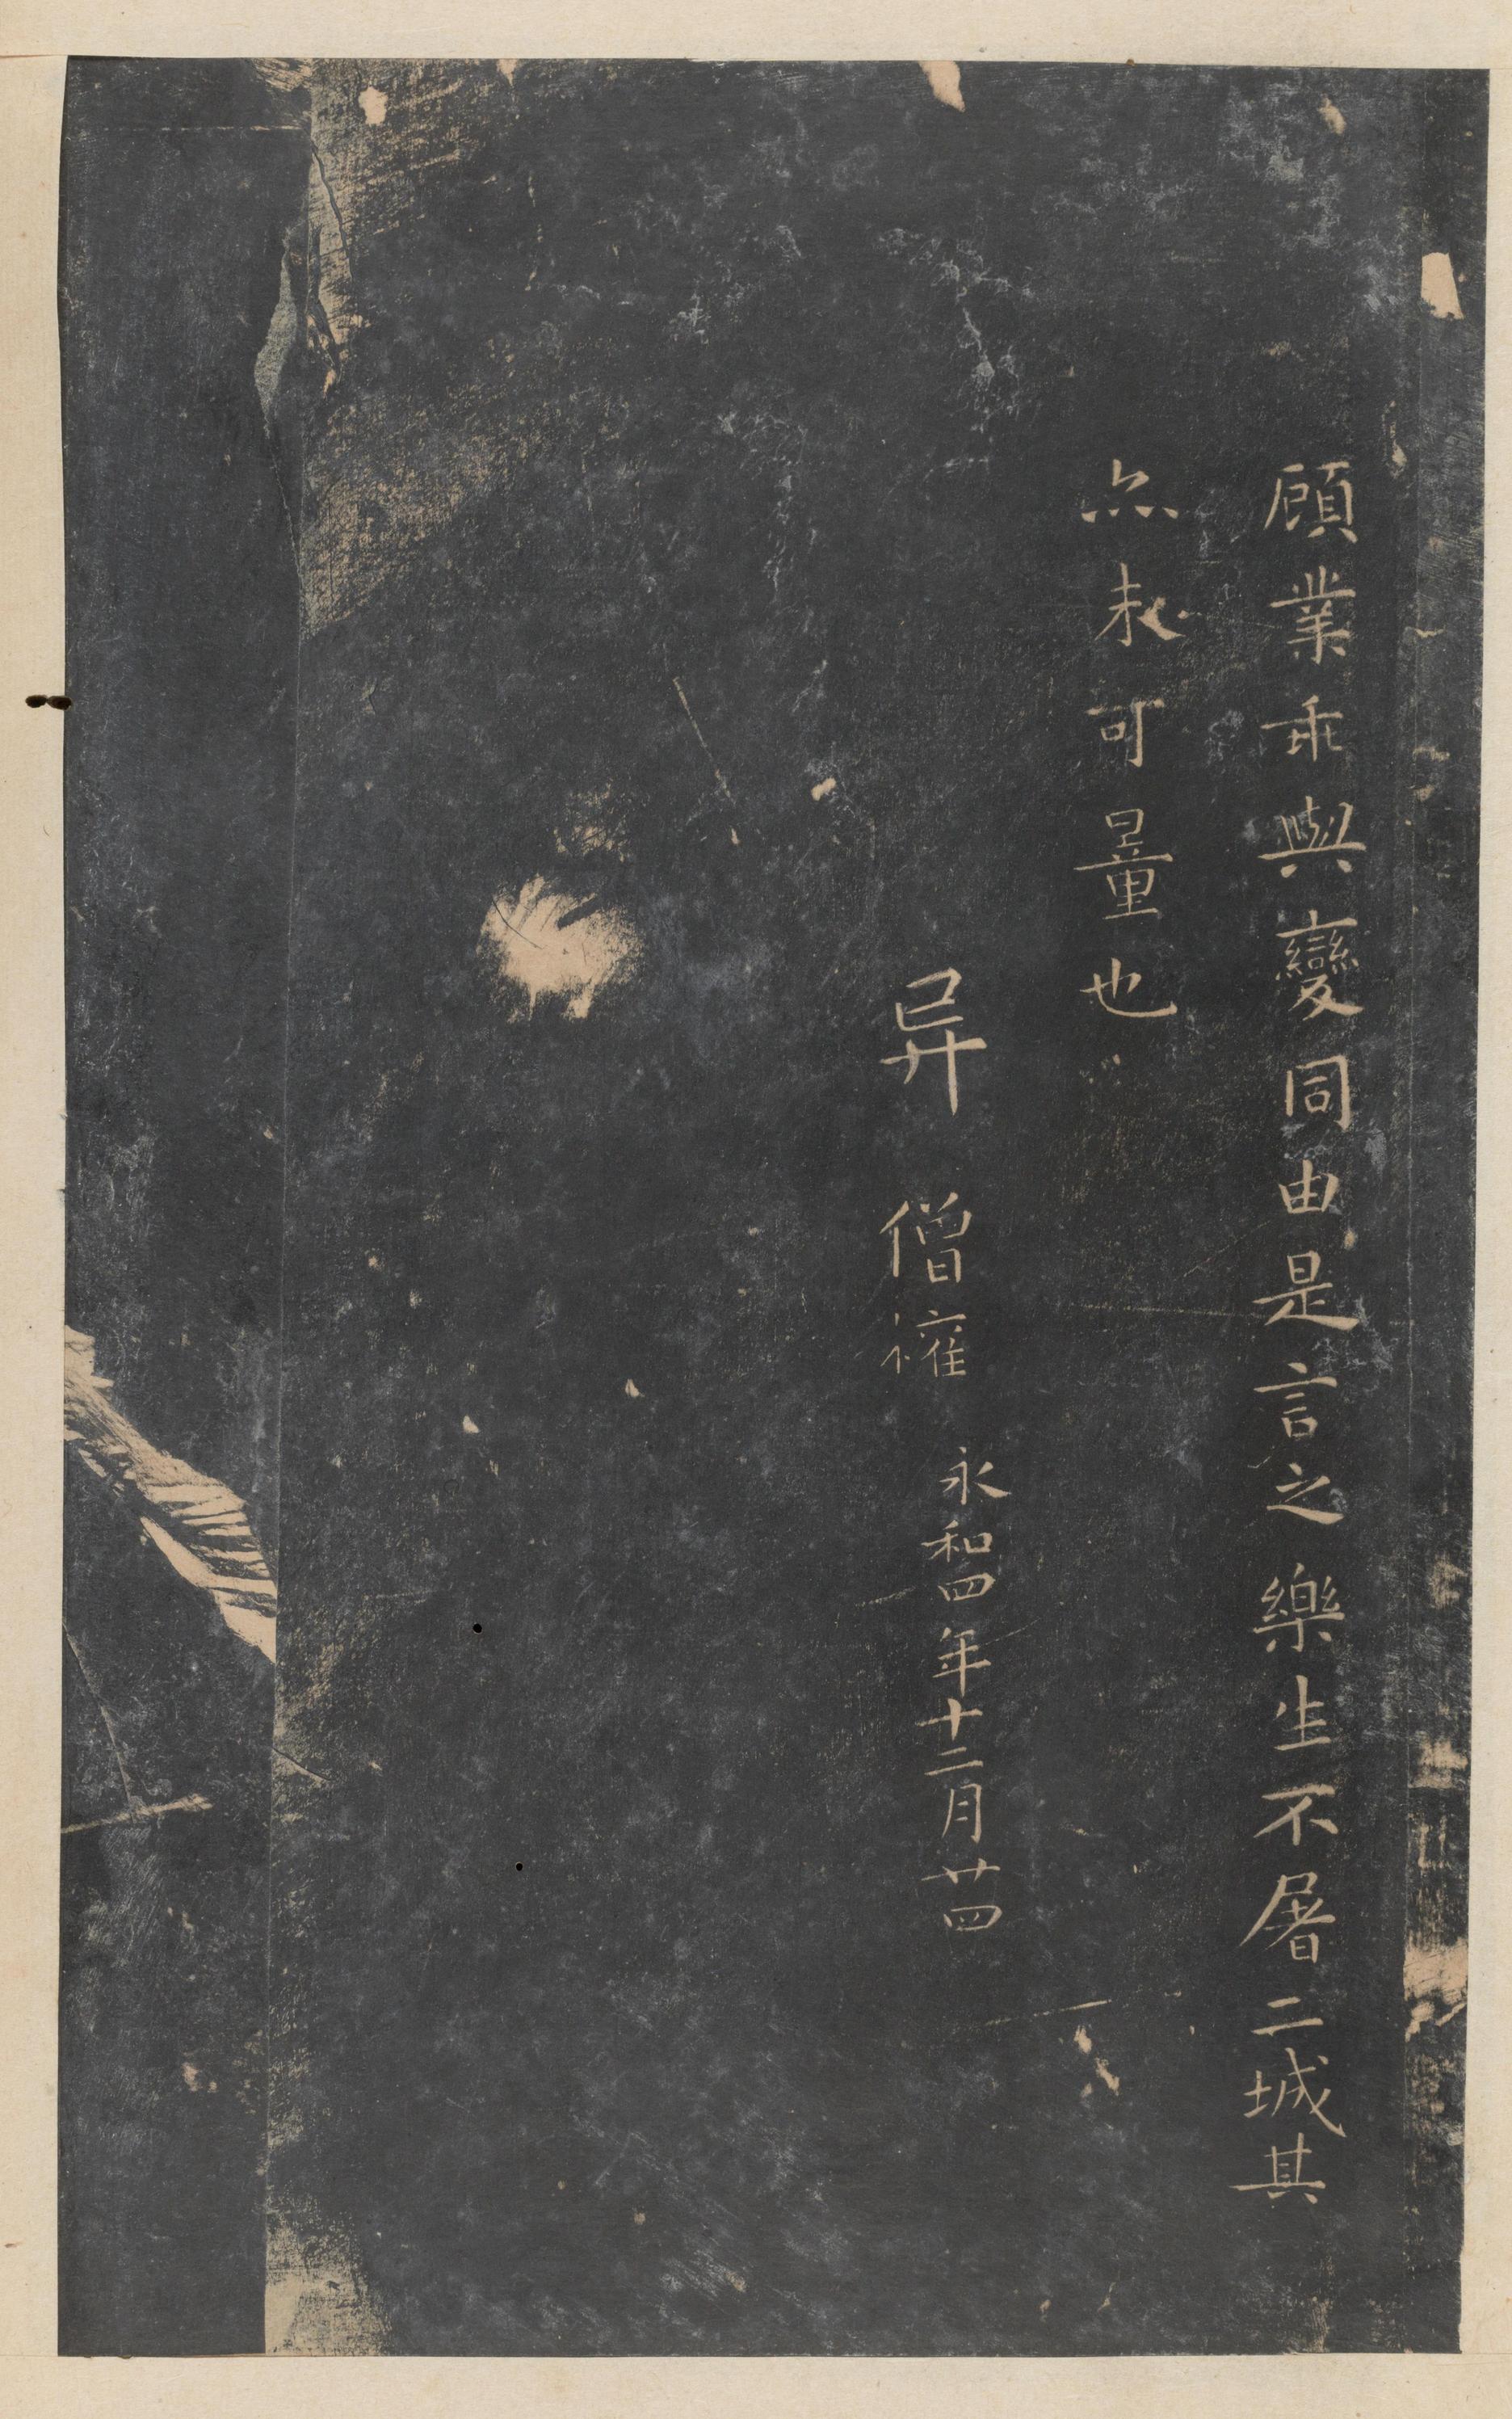 顧業乖與變同由是言之樂生不屠二城其
亦未可量也
异 僧權 永和四年十二月廿四